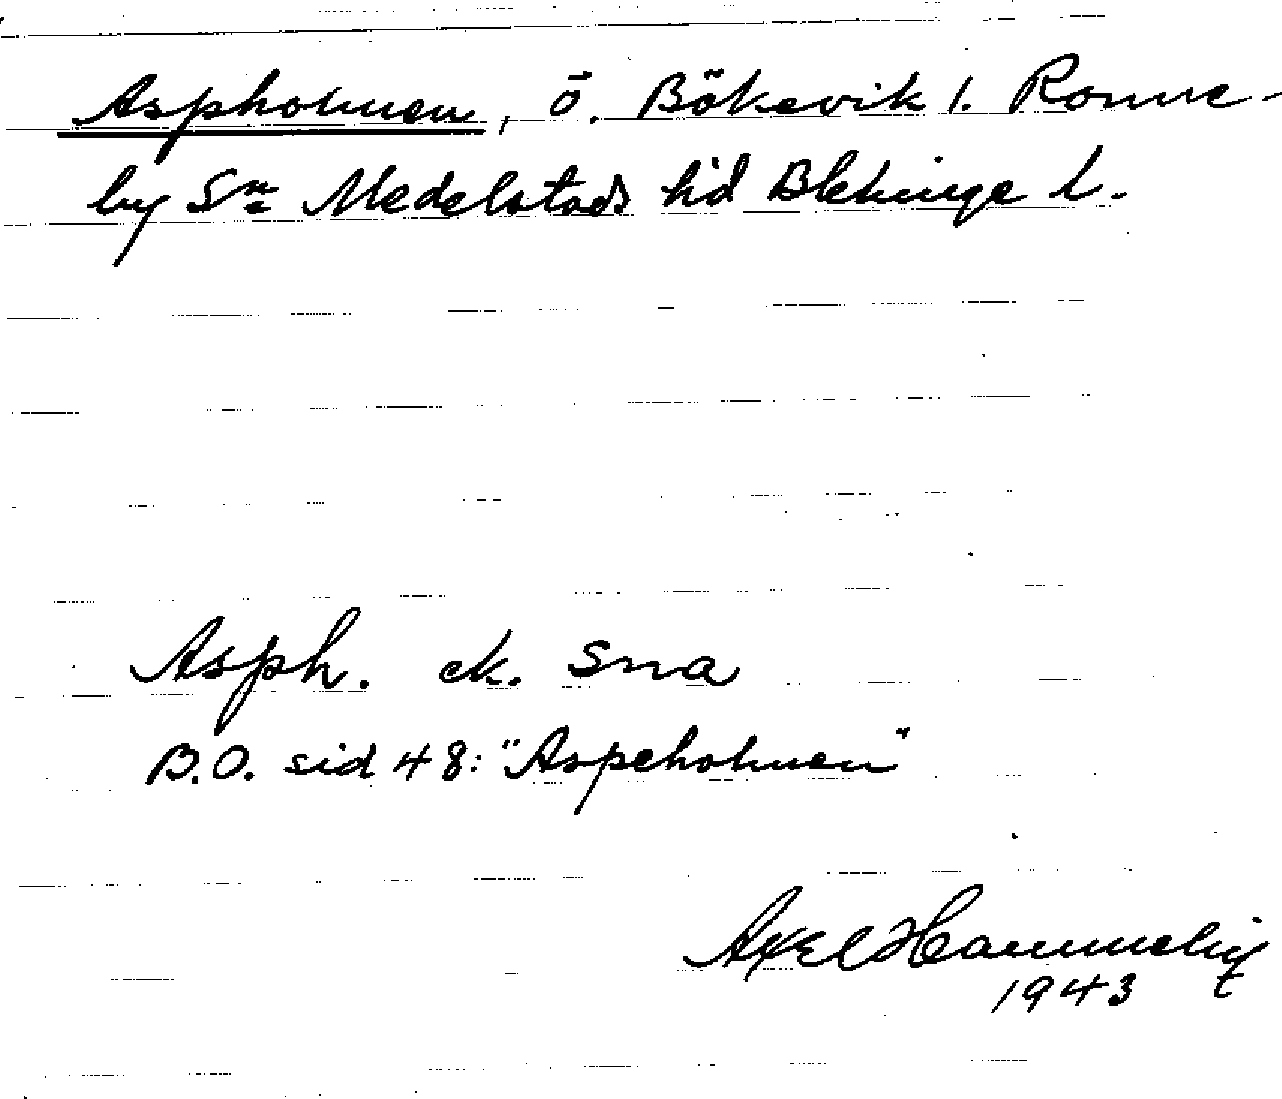 Aspholmen, ö. Bökevik i. Ronne-
by Sn Medelstads hd Blekinge l.
Asph. ek. Sna
B.O. sid 48: "Aspeholmen"
Axel
1943